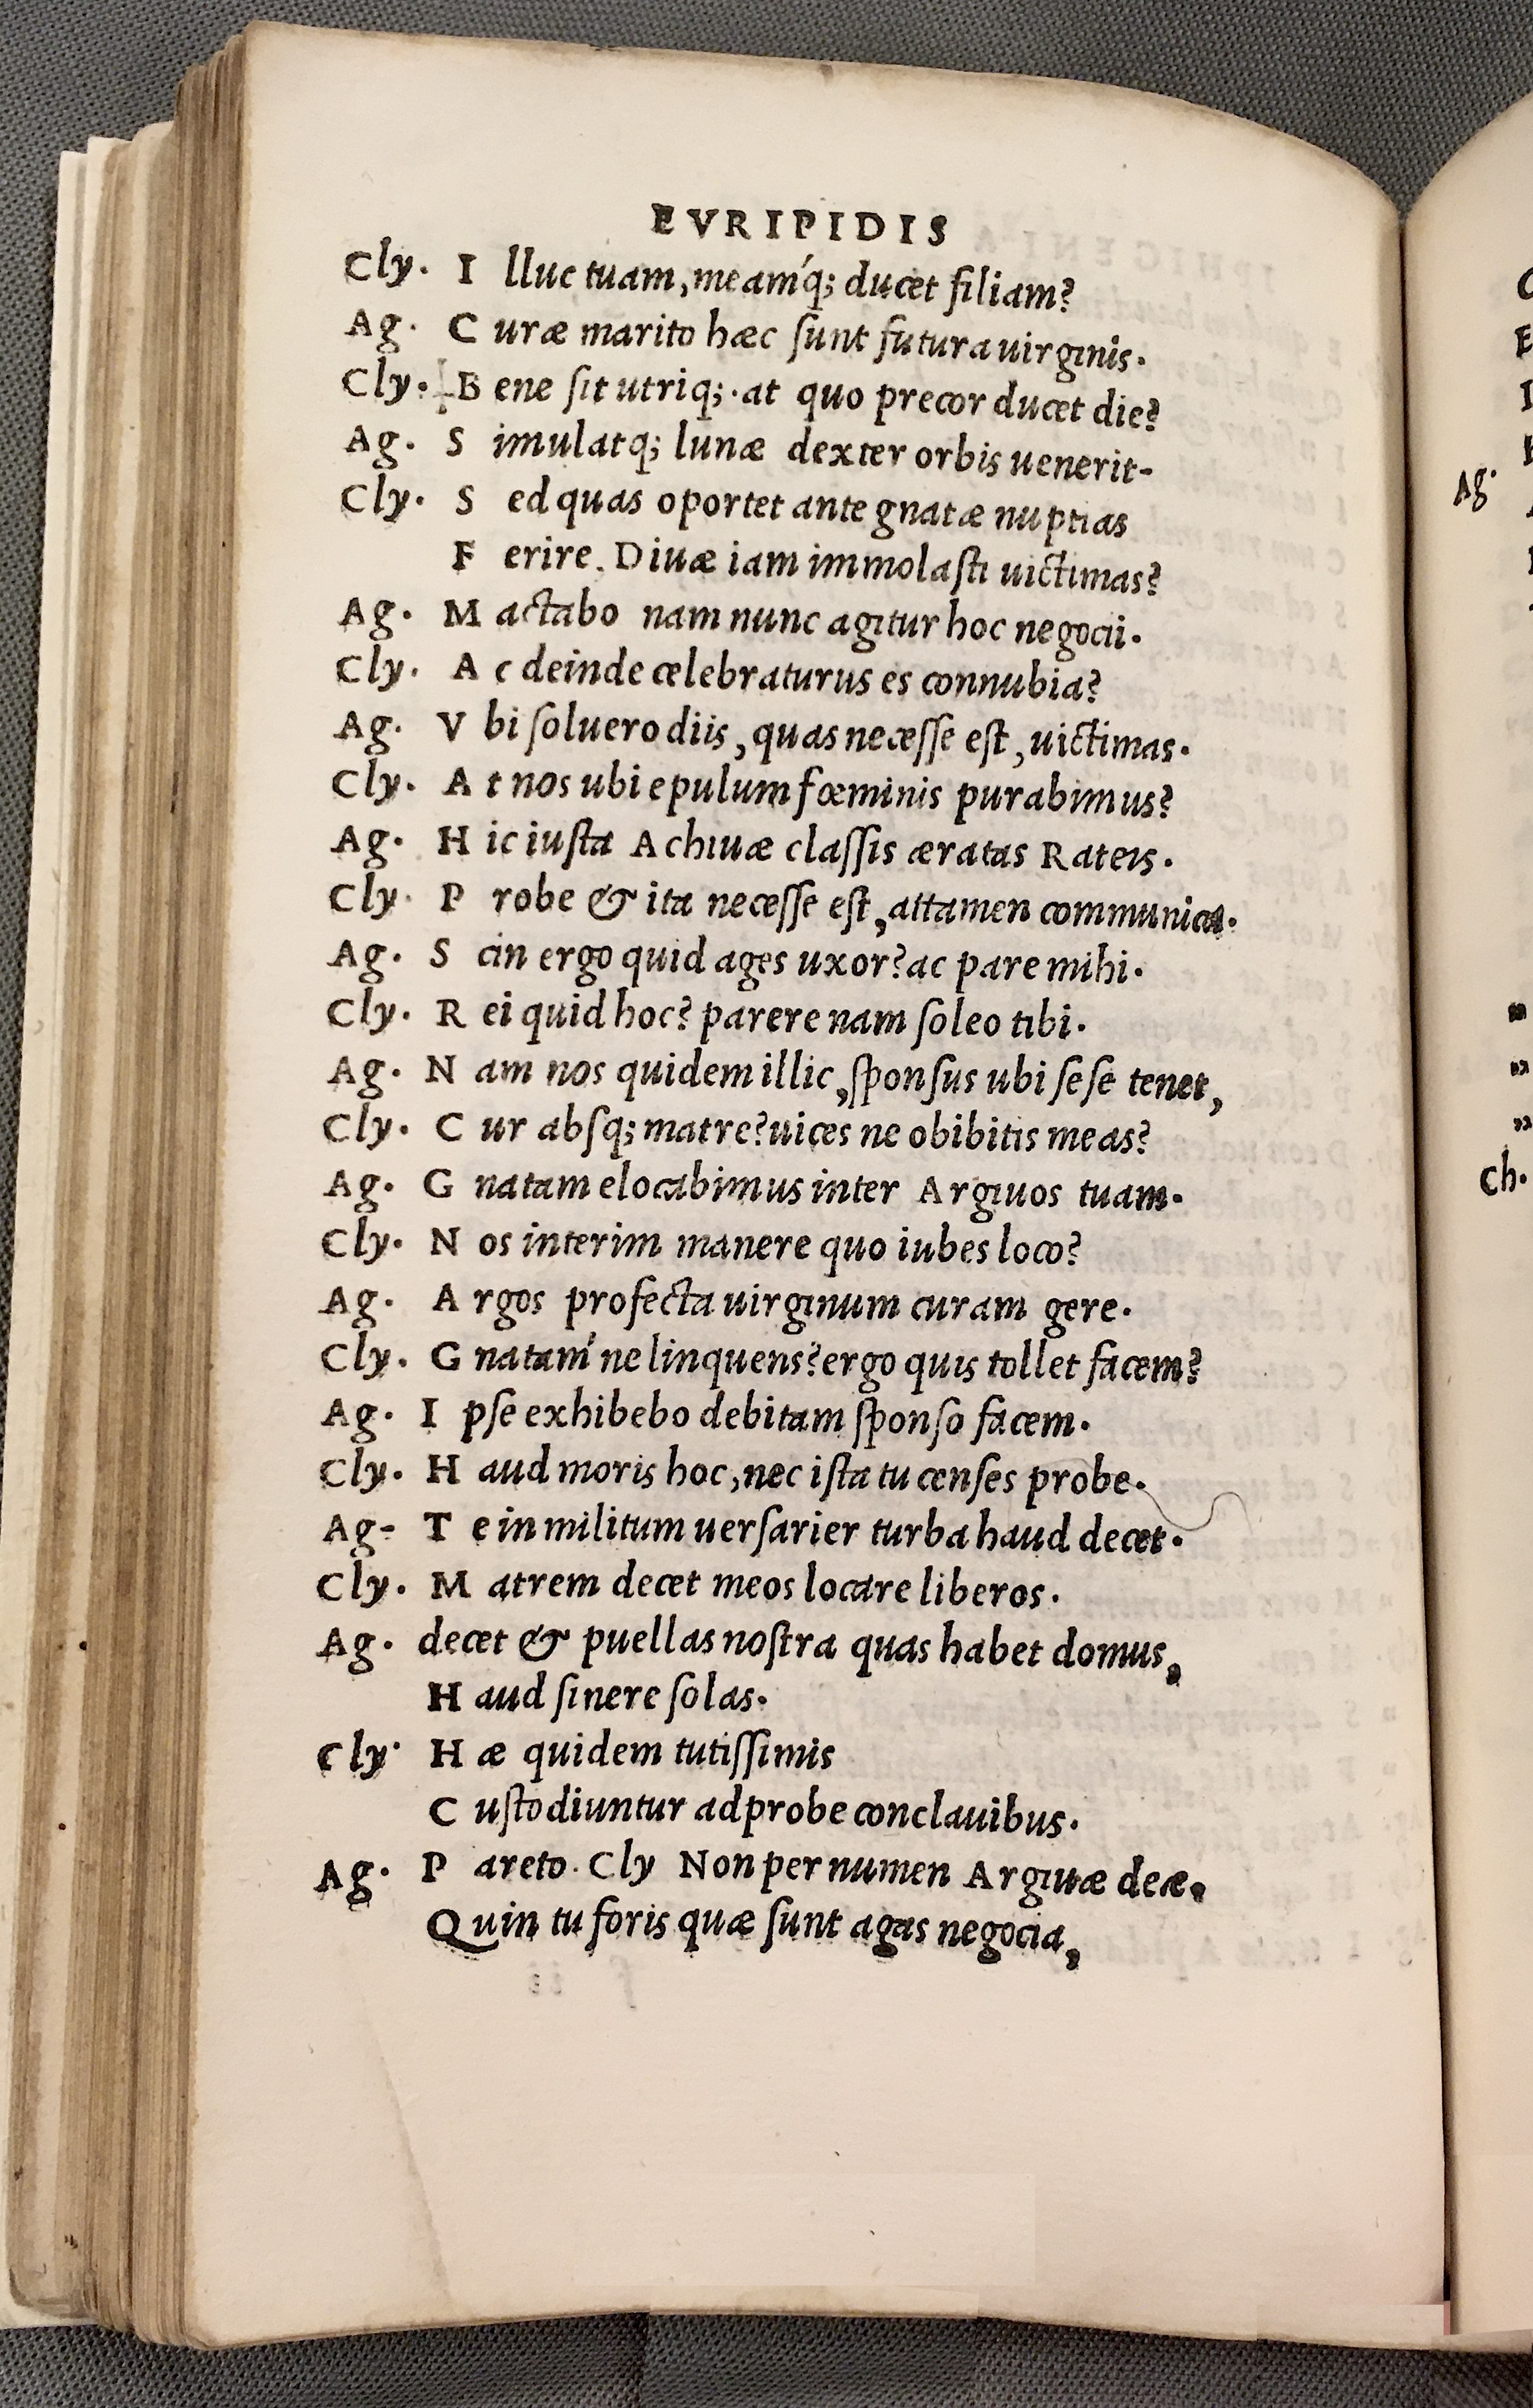 EVRIPIDIS
Cly. I lluc tuam, meamq́; ducet filiam?
Ag. C uræ marito hæc ſunt futura uirginis.
Cly. B ene ſit utriq;. at quo precor ducet die?
Ag. S imulatq; lunæ dexter orbis uenerit-
Cly. S ed quas oportet ante gnatæ nuptias
F erire. Diuæ iam immolaſti uictimas?
Ag. M actabo nam nunc agitur hoc negocii.
Cly. A c deinde celebraturus es connubia?
Ag. V bi ſoluero diis, quas neceſſe eſt, uictimas.
Cly. A t nos ubi epulum fœminis purabimus?
Ag. H ic iuſta Achiuæ claſſis æratas Rateis.
Cly. P robe & ita neceſſe eſt, attamen communicas.
Ag. S cin ergo quid ages uxor? ac pare mihi.
Cly. R ei quid hoc? parere nam ſoleo tibi.
Ag. N am nos quidem illic, ſponſus ubi ſeſe tenet,
Cly. C ur abſq; matre? uices ne obibitis meas?
Ag. G natam elocabimus inter Argiuos tuam.
Cly. N os interim manere quo iubes loco?
Ag. A rgos profecta uirginum curam gere.
Cly. G nataḿ ne linquens? ergo quis tollet facem?
Ag. I pſe exhibebo debitam ſponſo facem.
Cly. H aud moris hoc, nec iſta tu cenſes probe.
Ag- T e in militum uerſarier turba haud decet.
Cly. M atrem decet meos locare liberos.
Ag. decet & puellas noſtra quas habet domus,
H aud ſinere ſolas.
Cly. H æ quidem tutiſſimis
C uſtodiuntur adprobe conclauibus.
Ag. P areto. Cly Non per numen Argiuæ deæ.
Quin tu foris quæ ſunt agas negocia,
Ag.
„
„
„
Ch.